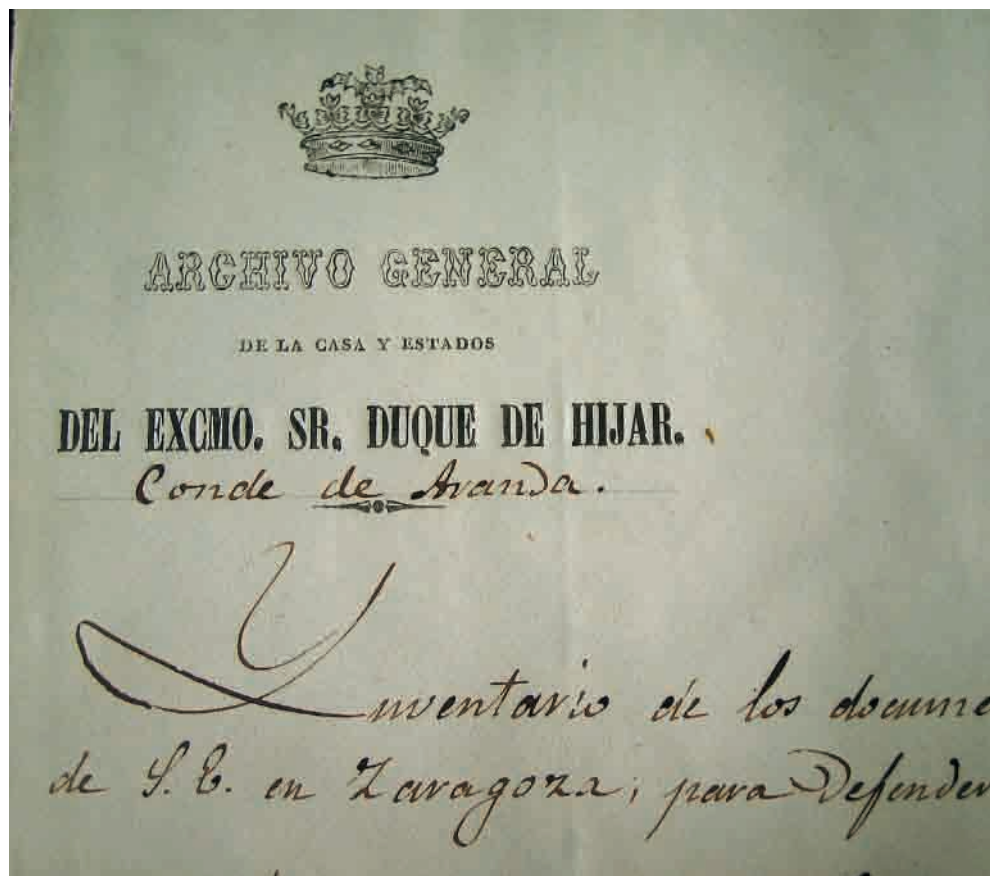 ARCHIVO GENERAL
DE LA CASA Y ESTADOS
DEL EXCMO. SR. DUQUE DE HIJAR.
Conde de Aranda.
Ynventario de los docume
de S. E. en Zaragoza, para Defender